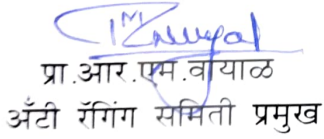 प्रा.आर.एम.वायाळ
अँटी रॅगिंग समिती प्रमुख